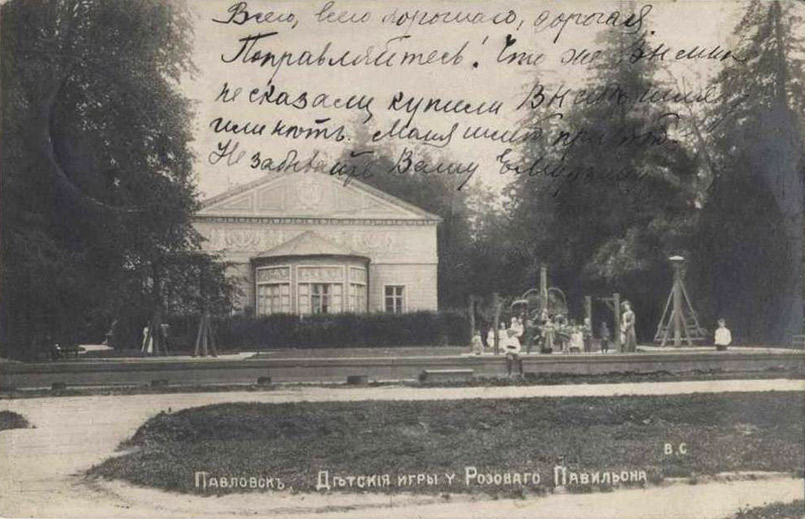 Всего, всего хорошаго, дорогая
Поправляйтесь! Что же Вы мнѣ
не сказали купили Вы
или нѣтъ. Маня шлетъ
Не забывайте Вашу
В.С
Павловскъ. Дѣтскія игры у Розоваго Павильона